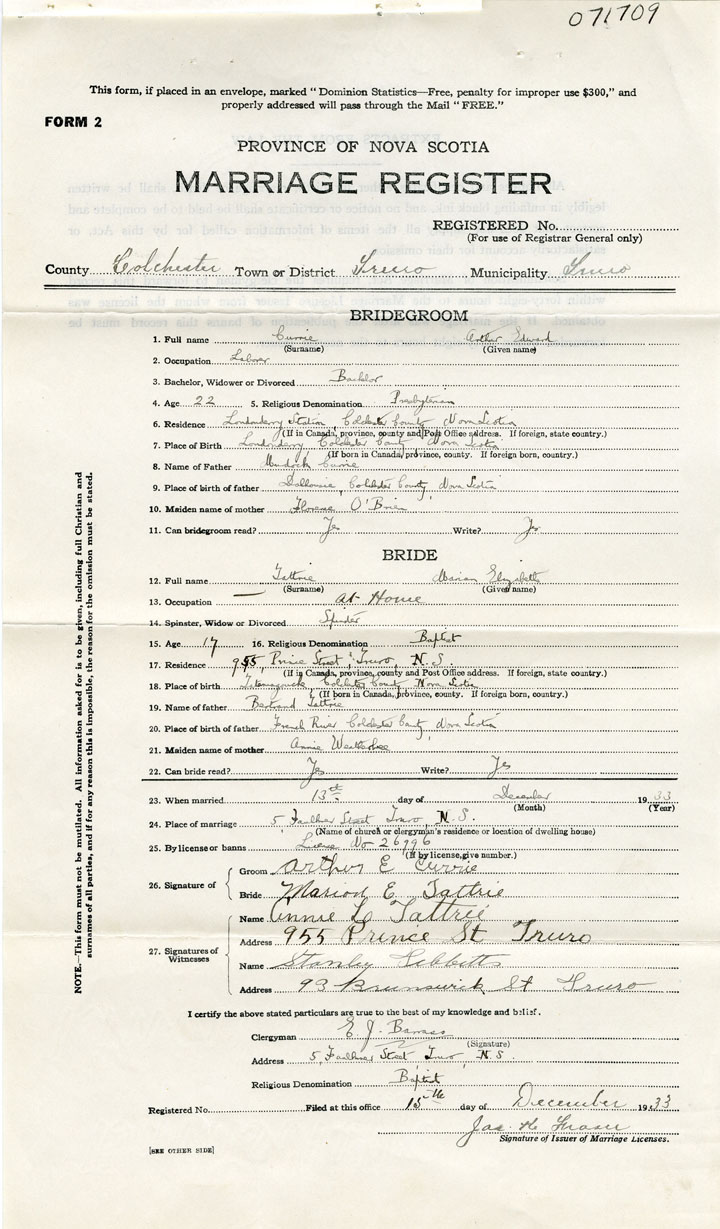 071709
This form, if placed in an envelope, marked “Dominion Statistics—Free, penalty for improper use $300,” and
properly addressed will pass through the Mail “FREE.”
FORM 2
PROVINCE OF NOVA SCOTIA
MARRIAGE REGISTER
REGISTERED No.
(For use of Registrar General only)
County Colchester Town or District Truro Municipality Truro
BRIDEGROOM
1. Full name Currie Arthur Edward
(Surname) (Given name)
2. Occupation Laborer
3. Bachelor, Widower or Divorced Bachelor
4. Age 22 5. Religious Denomination Presbyterian
6. Residence Londonderry Station Colchester County Nova Scotia
(If in Canada, province, county and Post Office address. If foreign, state country.)
7. Place of Birth Londonderry Colchester County Nova Scotia
(If born in Canada, province, county. If foreign born, country.)
8. Name of Father Murdock Currie
9. Place of birth of father Dalhousie, Colchester County, Nova Scotia
10. Maiden name of mother Florence O'Brien
11. Can bridegroom read? Yes Write? Yes
BRIDE
12. Full name Tattrie Marion Elizabeth
(Surname) (Given name)
13. Occupation At Home
14. Spinster, Widow or Divorced Spinster
15. Age 17 16. Religious Denomination Baptist
17. Residence 955 Prince Street, Truro, N.S.
(If in Canada, province, county and Post Office address. If foreign, state country.)
18. Place of birth Tatamagouche Colchester County Nova Scotia
(If born in Canada, province, county. If foreign born, country.)
19. Name of father Bertrand Tattrie
20. Place of birth of father French River Colchester County, Nova Scotia
21. Maiden name of mother Annie Weatherbee
22. Can bride read? Yes Write? Yes
23. When married 13th day of December 1933
(Month) (Year)
24. Place of marriage 5 Faulkner Street Truro, N.S.
(Name of church or clergyman's residence or location of dwelling house)
25. By license or banns License No 26996
(If by license, give number.)
26. Signature of
Groom Arthur E Currie
Bride Marion E. Tattrie
27. Signatures of Witnesses
Name Annie L Tattrie
Address 955 Prince St Truro
Name Stanley Tibbetts
Address 93 Brunswick St Truro
I certify the above stated particulars are true to the best of my knowledge and belief.
Clergyman E. J. Barrass
(Signature)
Address 5 Faulkner Street Truro N.S.
Religious Denomination Baptist
Registered No. Filed at this office 15th day of December 1933
Jas. H. Fraser
Signature of Issuer of Marriage Licenses.
[SEE OTHER SIDE]
NOTE.—This form must not be mutilated. All information asked for is to be given, including full Christian and
surnames of all parties, and if for any reason this is impossible, the reason for the omission must be stated.